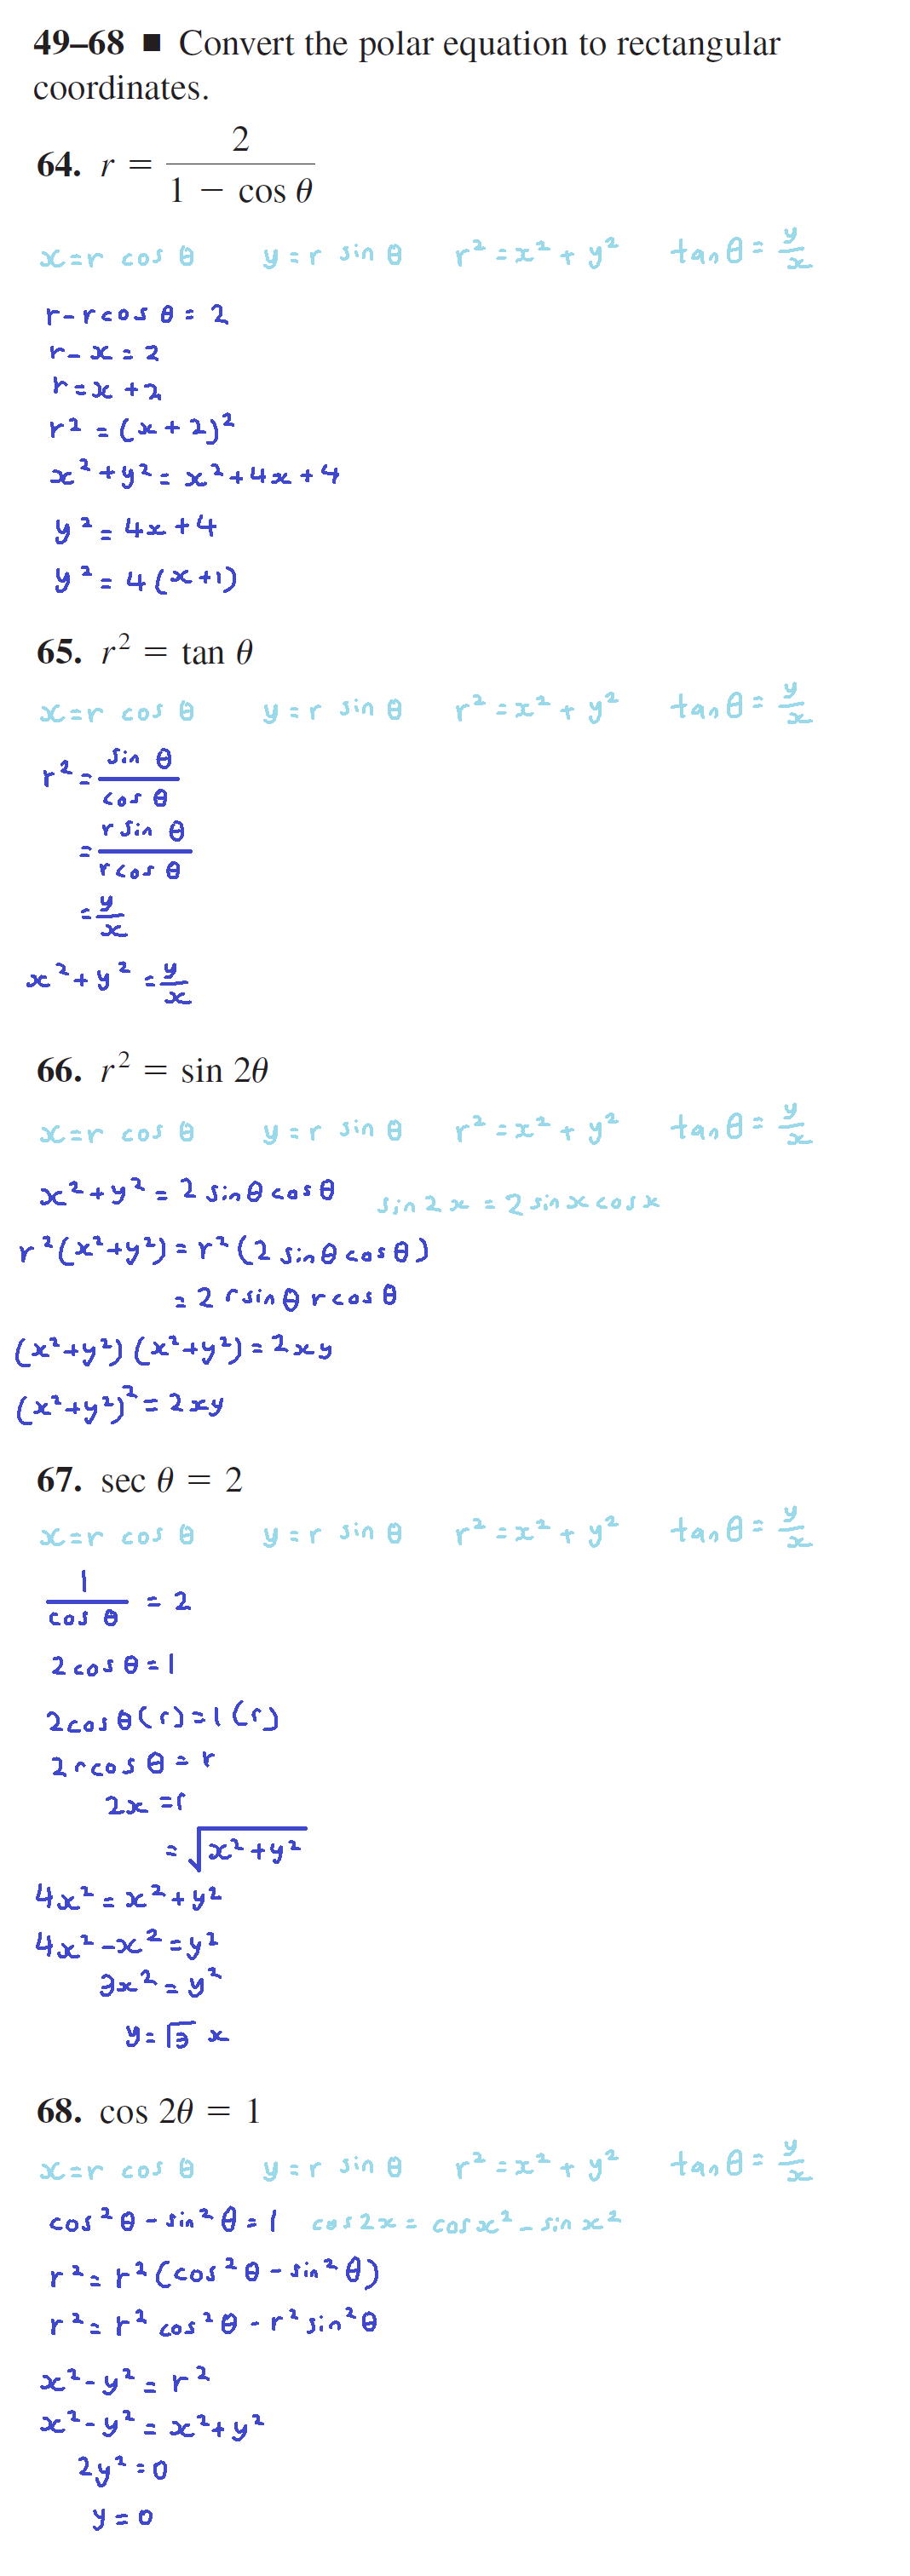 49–68 ■ Convert the polar equation to rectangular
coordinates.
64. r = 2 / (1 − cos θ)
x = r cos θ y = r sin θ r² = x² + y² tan θ = y/x
r - r cos θ = 2
r - x = 2
r = x + 2
r² = (x + 2)²
x² + y² = x² + 4x + 4
y² = 4x + 4
y² = 4(x + 1)
65. r² = tan θ
x = r cos θ y = r sin θ r² = x² + y² tan θ = y/x
r² = sin θ / cos θ
= r sin θ / r cos θ
= y/x
x² + y² = y/x
66. r² = sin 2θ
x = r cos θ y = r sin θ r² = x² + y² tan θ = y/x
x² + y² = 2 sin θ cos θ sin 2x = 2 sin x cos x
r²(x² + y²) = r²(2 sin θ cos θ)
= 2 r sin θ r cos θ
(x² + y²)(x² + y²) = 2xy
(x² + y²)² = 2xy
67. sec θ = 2
x = r cos θ y = r sin θ r² = x² + y² tan θ = y/x
1 / cos θ = 2
2 cos θ = 1
2 cos θ (r) = 1 (r)
2 r cos θ = r
2x = r
= √(x² + y²)
4x² = x² + y²
4x² - x² = y²
3x² = y²
y = √3 x
68. cos 2θ = 1
x = r cos θ y = r sin θ r² = x² + y² tan θ = y/x
cos² θ - sin² θ = 1 cos 2x = cos x² - sin x²
r² = r²(cos² θ - sin² θ)
r² = r² cos² θ - r² sin² θ
x² - y² = r²
x² - y² = x² + y²
2y² = 0
y = 0